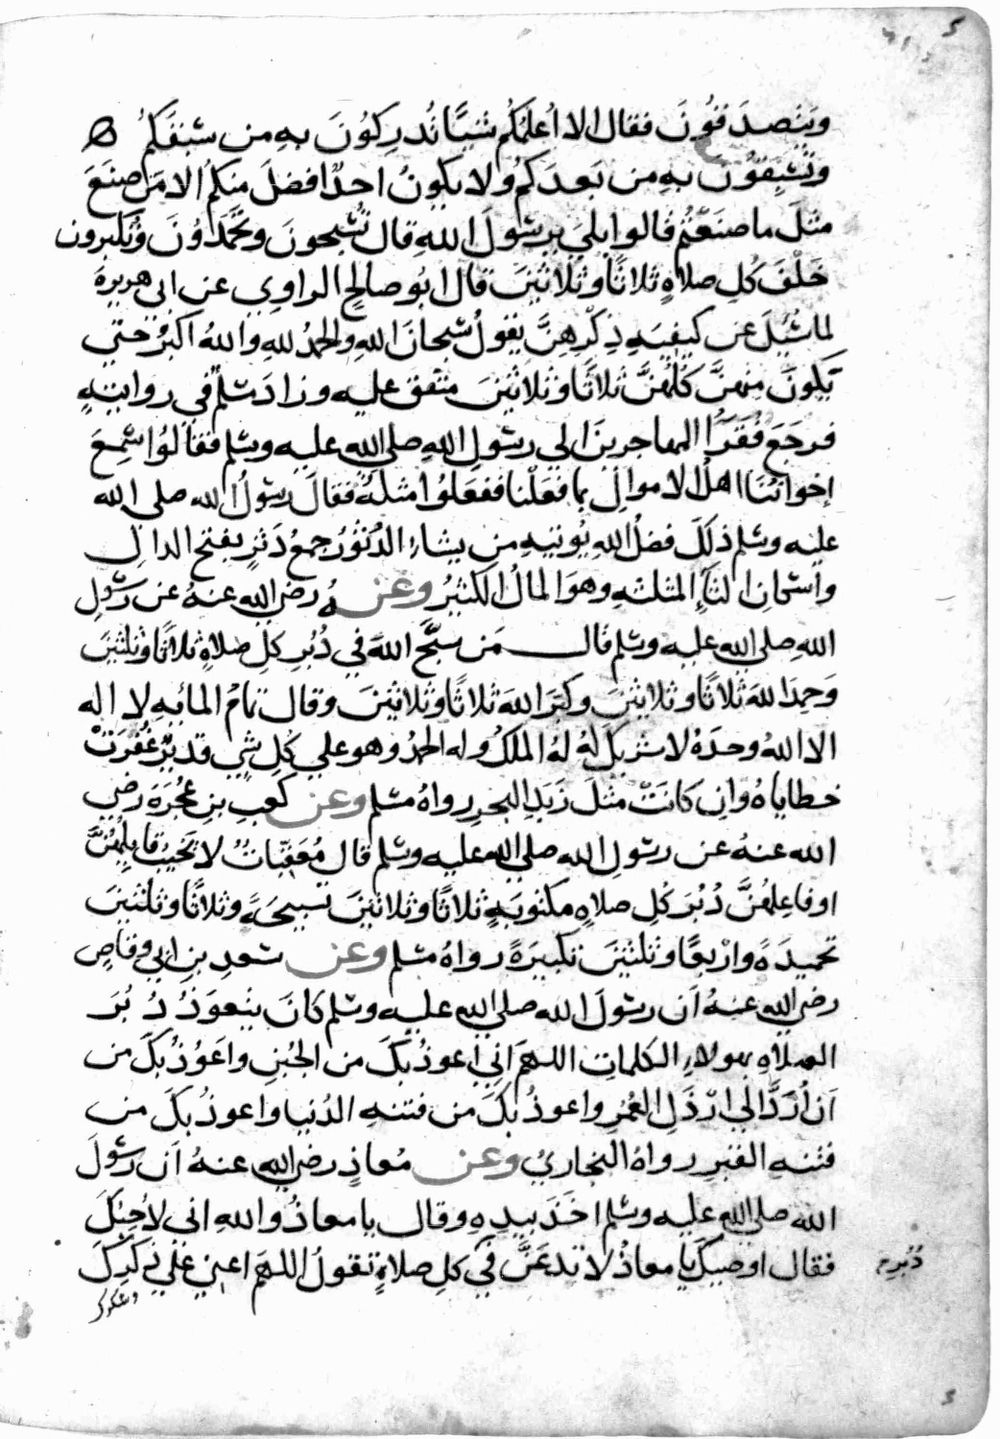 ويتصدقون فقال الا اعلمكم شيئا تدركون به من سبقكم
وتسبقون به من بعدكم ولا يكون احدا افضل منكم الا من صنع
مثل ما صنعتم قالوا بلي يرسول الله قال تسبحون وتحمدون وتكبرون
خلف كل صلاة ثلاثا وثلاثين قال ابو صالح الراوي عن ابي هريرة
لما سئل عن كيفيه ذكرهن يقول سبحان الله والحمد لله والله اكبر حتي
يكون منهن كلهن ثلاثا وثلاثين متفق عليه وزاد مسلم في روايته
فرجع فقرا المهاجرين الى رسول الله صلى الله عليه وسلم فقالوا سمع
اخواننا اهل الاموال بما فعلنا ففعلوا مثله فقال رسول الله صلى الله
عليه وسلم ذلك فضل الله يوتيه من يشاء الدثور جمع دثر بفتح الدال
واسكان الثاء المثلثه وهو المال الكثير وعنه رضى الله عنه عن رسول
الله صلى الله عليه وسلم قال من سبح الله في دبر كل صلاة ثلاثا وثلثين
وحمد الله ثلاثا وثلاثين وكبر الله ثلاثا وثلاثين وقال تمام المائه لا اله
الا الله وحده لا شريك له له الملك وله الحمد وهو علي كل شي قدير غفرت
خطاياه وان كانت مثل زبد البحر رواه مسلم وعن كعب بن عجرة رضي
الله عنه عن رسول الله صلى الله عليه وسلم قال معقبات لا يخيب قايلهن
او فاعلهن دبر كل صلاه مكتوبة ثلاثا وثلاثين تسبيحة وثلاثا وثلثين
تحميدة واربعا وثلثين تكبيرة رواه مسلم وعن سعد بن ابي وقاص
رضى الله عنه ان رسول الله صلى الله عليه وسلم كان يتعوذ دبر
الصلاه بهولاء الكلمات اللهم اني اعوذ بك من الجبن واعوذ بك من
ان ارد الي ارذل العمر واعوذ بك من فتنه الدنيا واعوذ بك من
فتنه القبر رواه البخاري وعن معاذ رضى الله عنه ان رسول
الله صلى الله عليه وسلم اخذ بيده وقال يا معاذ والله انى لاحبك
فقال اوصيك يا معاذ لا تدعن في كل صلاة تقول اللهم اعني علي ذكرك
دبر م
وشكرك